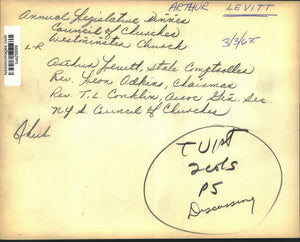 ARTHUR LEVITT
Annual Legislative Dinner
Council of Churches
Westminster Church
3/3/65
L-R
Arthur Levitt, State Comptroller
Rev. Leon Adkins, Chairman
Rev. T. L. Conklin, Assoc Gen. Sec
NYS Council of Churches
2 cols
P5
Discussing